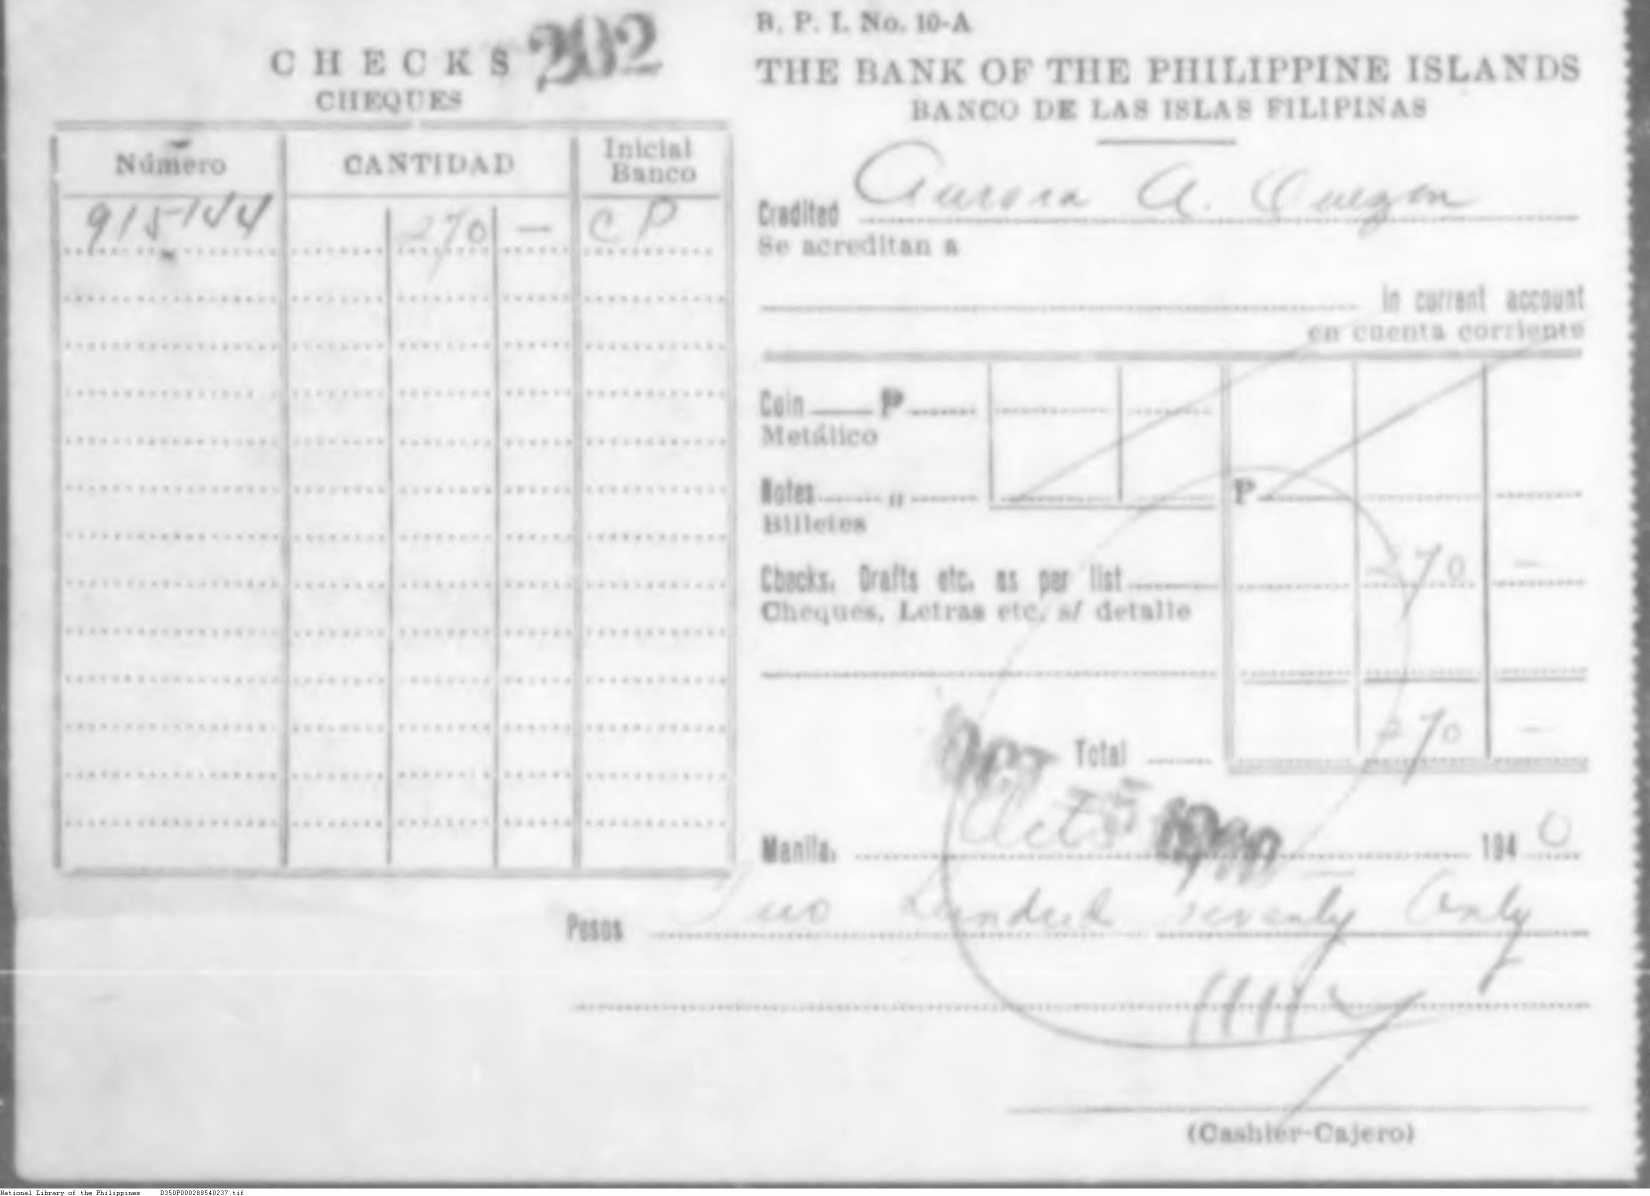 CHECKS 202
CHEQUES
Número CANTIDAD Inicial Banco
915-144 270 — C P
B. P. I. No. 10-A
THE BANK OF THE PHILIPPINE ISLANDS
BANCO DE LAS ISLAS FILIPINAS
Credited Aurora A. Quezon
Se acreditan a
in current account
en cuenta corriente
Coin P
Metálico
Notes „ P
Billetes
Checks, Drafts etc. as per list 270 —
Cheques, Letras etc, s/ detalle
Total 270 —
OCT 5 1940
Manila, Oct. 5 194 0
Pesos Two hundred seventy Only
(Cashier-Cajero)
National Library of the Philippines D350P000288540237.tif